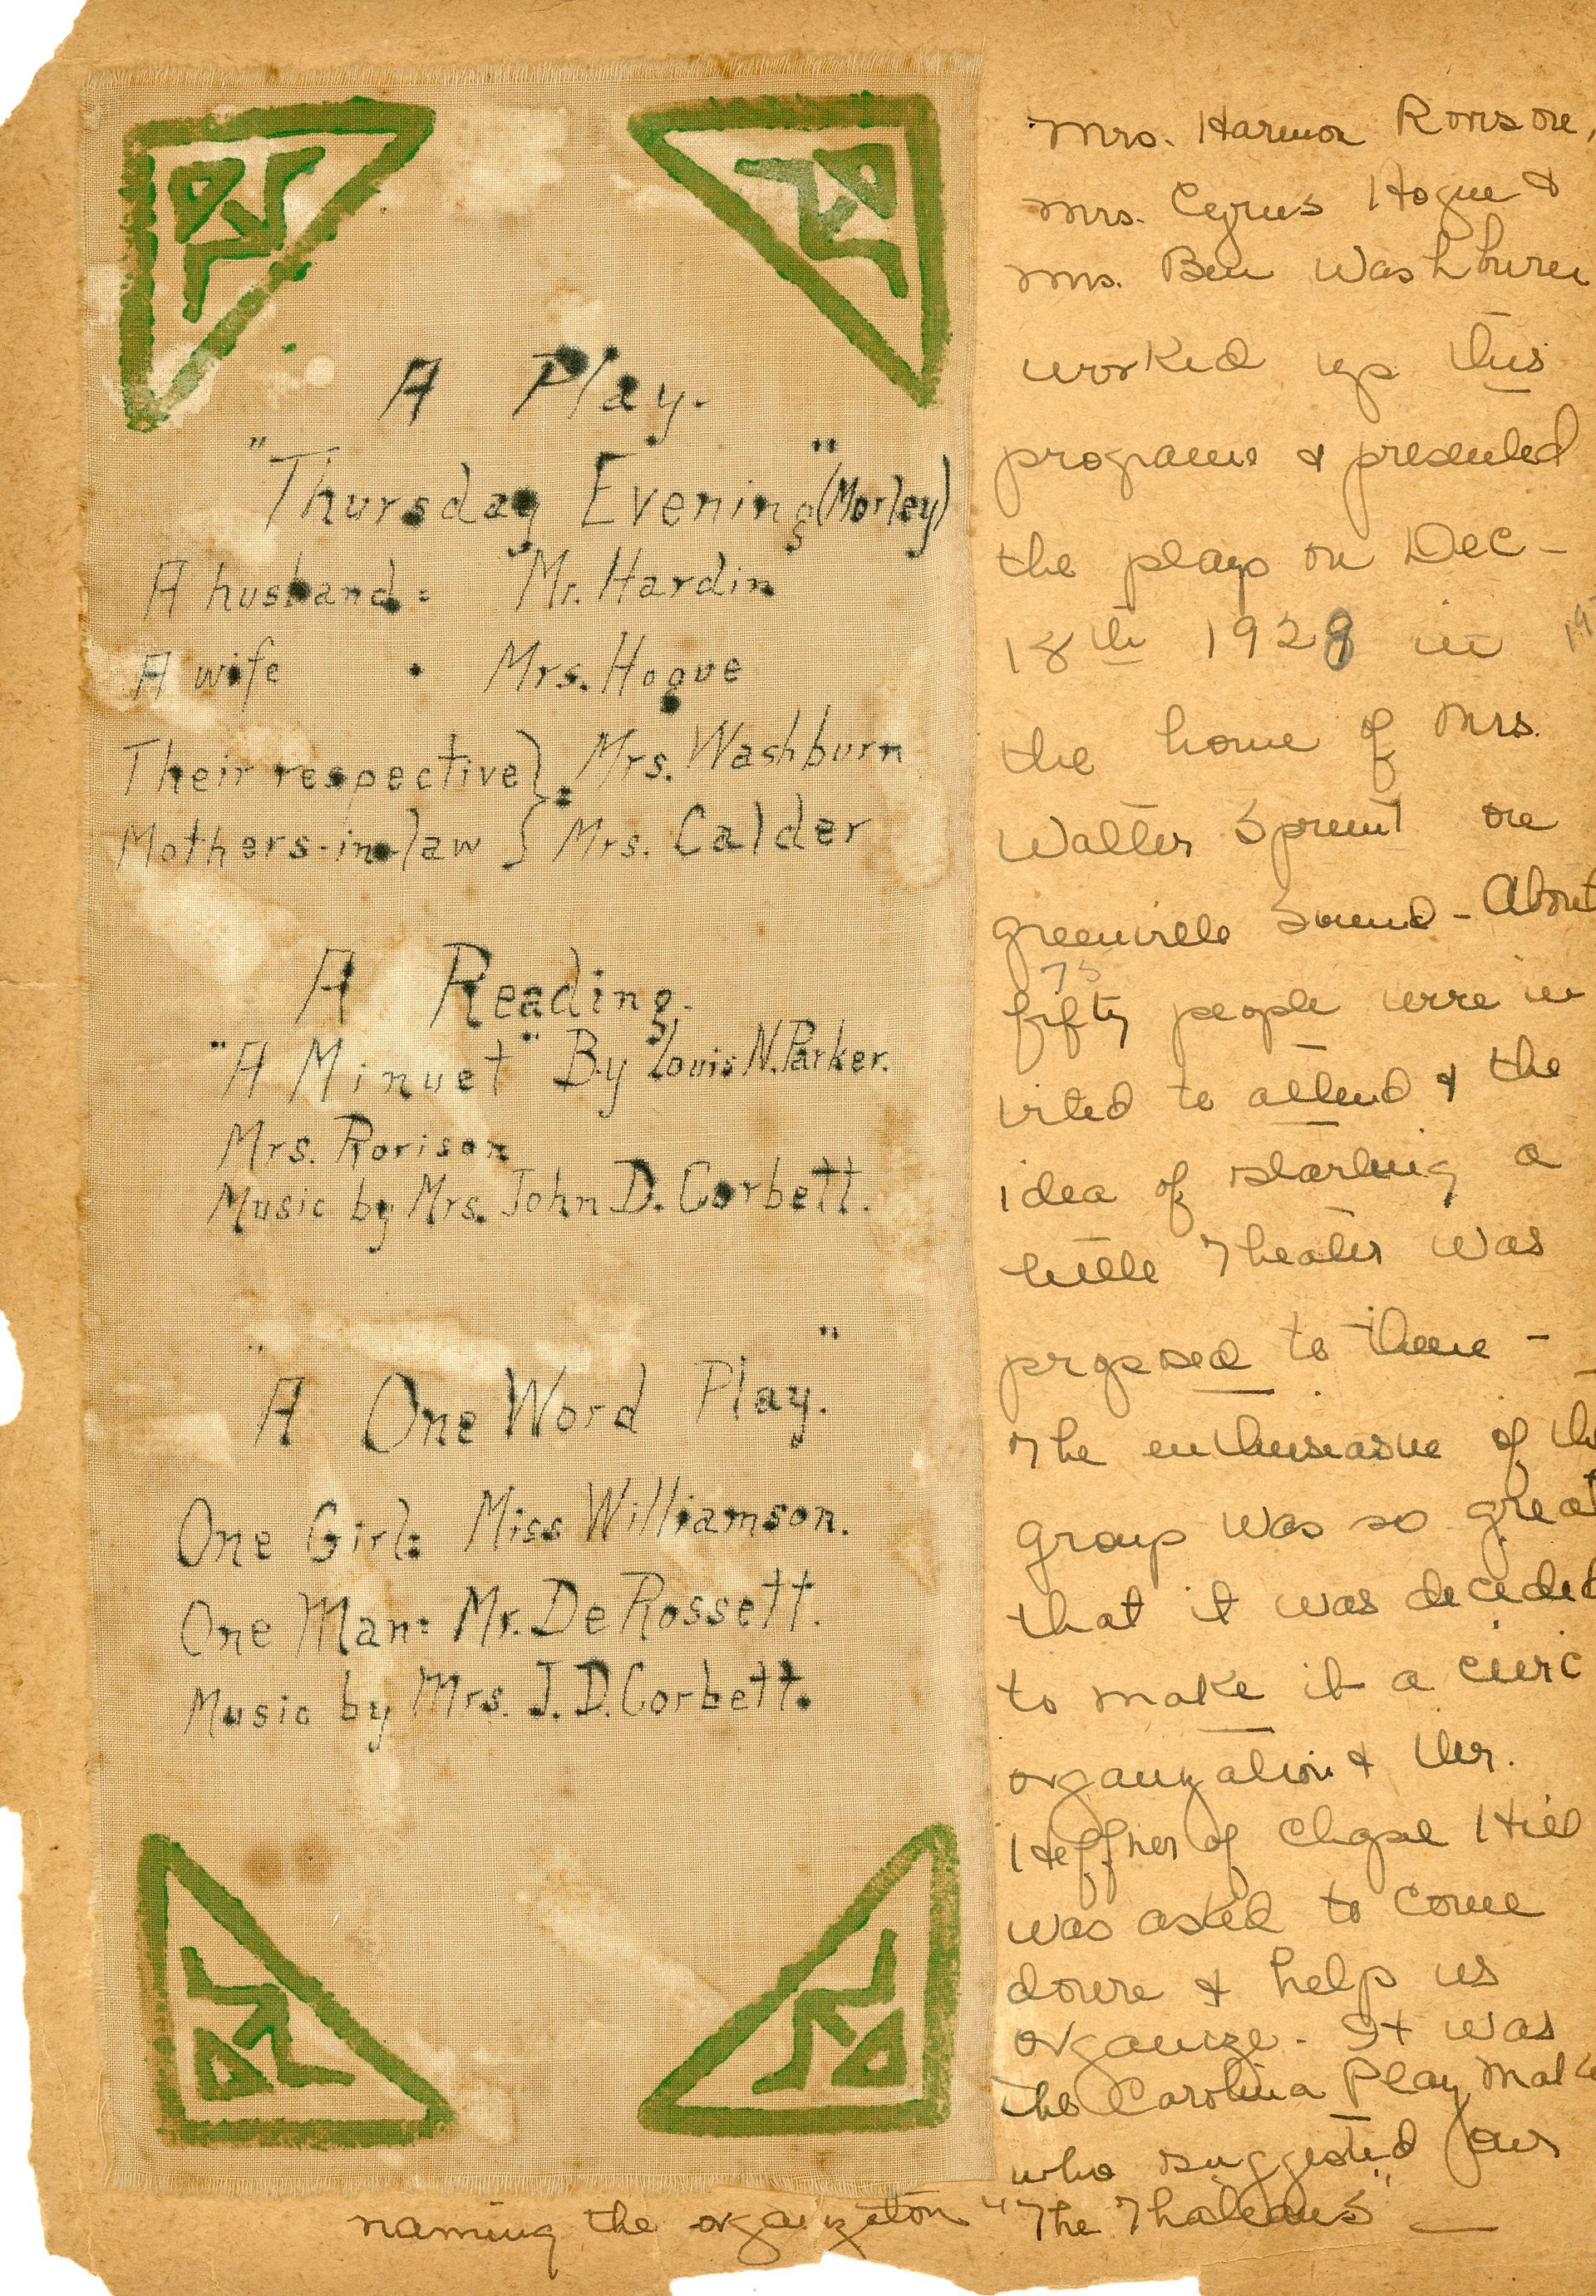 A Play.
"Thursday Evening" (Morley)
A husband: Mr. Hardin
A wife : Mrs. Hogue
Their respective } : Mrs. Washburn
Mothers-in-law } Mrs. Calder
A Reading.
"A Minuet" By Louis N. Parker.
Mrs. Rorison
Music by Mrs. John D. Corbett.
"A One Word Play."
One Girl: Miss Williamson.
One Man: Mr. De Rossett.
Music by Mrs. J. D. Corbett.
Mrs. Harmon Rorison,
Mrs. Cyrus Hogue &
Mrs. Ben Washburn
worked up this
program & presented
the plays on Dec-
18th 1928 in 19
the home of Mrs.
Walter Sprunt on
Greenville Sound - About
75
fifty people were in
vited to attend & the
idea of starting a
little Theater was
proposed to them -
The enthusiasm of the
group was so great
that it was decided
to make it a civic
organization & Mr.
Heffner of Chapel Hill
was asked to come
down & help us
organize - It was
the Carolina Play Mak
who suggested our
naming the organization "The Thaleans" —